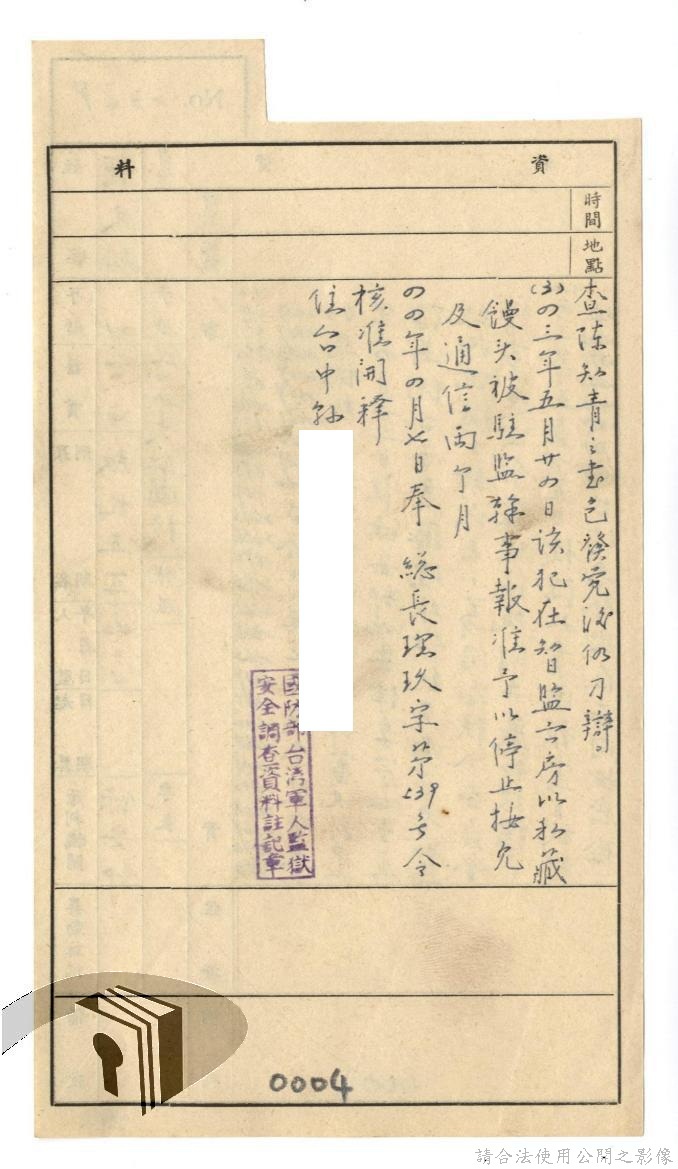 資料
時間
地點
查陳知青之書包發覺後仍刁辯
(3)四三年五月廿四日該犯在智監六房以私藏
饅头被駐監幹事報准予以停止接見
及通信兩个月
四四年四月七日奉 總長理玖字第239号令
核准開释
住台中縣
國防部台湾軍人監獄
安全調查資料註記章
0004
請合法使用公開之影像